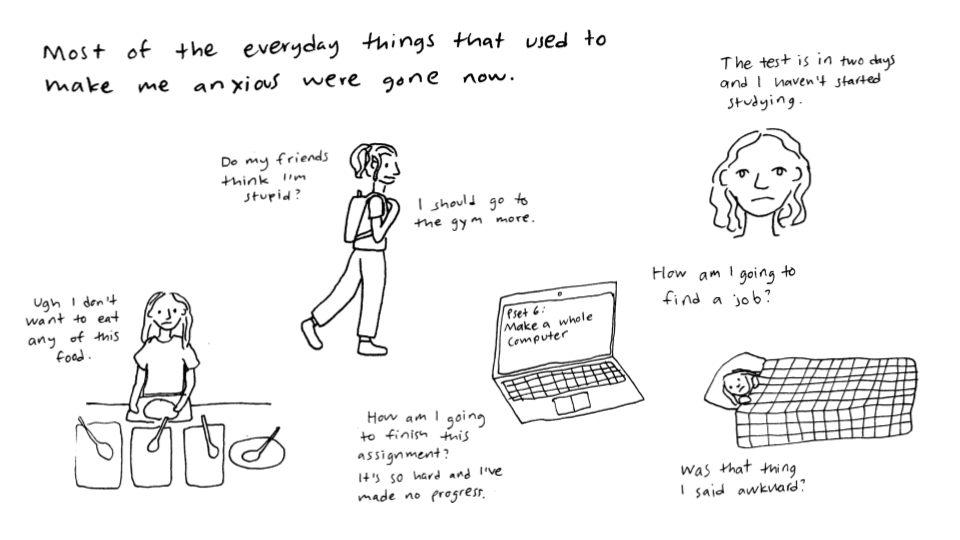 Most of the everyday things that used to
make me anxious were gone now.
The test is in two days
and I haven't started
studying.
Do my friends
think I'm
stupid?
I should go to
the gym more.
Ugh I don't
want to eat
any of this
food.
Pset 6:
Make a whole
computer
How am I going to
find a job?
How am I going
to finish this
assignment?
It's so hard and I've
made no progress.
Was that thing
I said awkward?